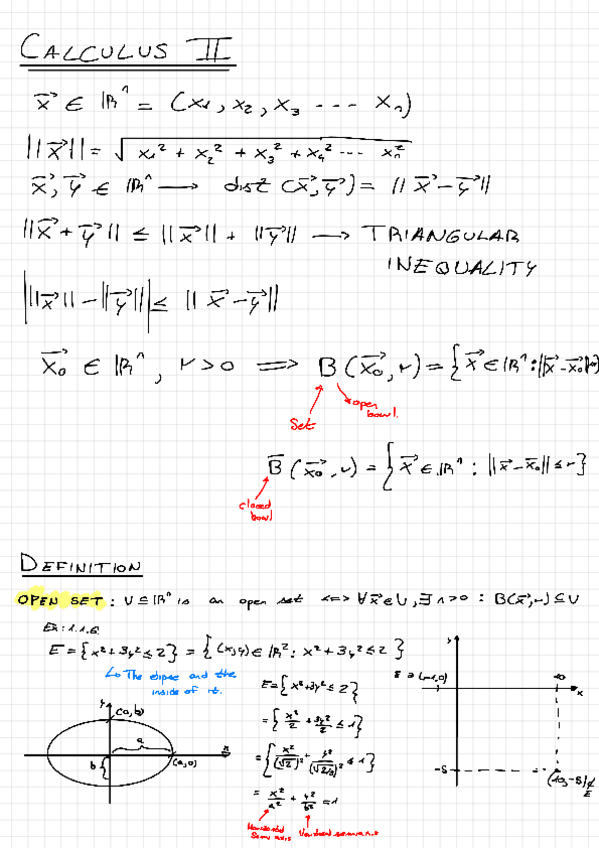 CALCULUS II
x⃗ ∈ ℝⁿ = (x₁, x₂, x₃ --- xₙ)
||x⃗|| = √(x₁² + x₂² + x₃² + x₄² --- xₙ²)
x⃗, y⃗ ∈ ℝⁿ → dist (x⃗, y⃗) = ||x⃗ - y⃗||
||x⃗ + y⃗|| ≤ ||x⃗|| + ||y⃗|| → TRIANGULAR
INEQUALITY
| ||x⃗|| - ||y⃗|| | ≤ ||x⃗ - y⃗||
x⃗₀ ∈ ℝⁿ, r > 0 ⟹ B(x⃗₀, r) = {x⃗ ∈ ℝⁿ : ||x⃗ - x⃗₀||
Set
open
bowl.
B̅(x⃗₀, r) = {x⃗ ∈ ℝⁿ : ||x⃗ - x⃗₀|| ≤ r}
closed
bowl
DEFINITION
OPEN SET : U ⊆ ℝⁿ is an open set <=> ∀x⃗ ∈ U, ∃ r > 0 : B(x⃗, r) ⊆ U
Ex: 1.1.6
E = {x² + 3y² ≤ 2} = {(x,y) ∈ ℝ² : x² + 3y² ≤ 2}
↳ The elipse and the
inside of it.
E = {x² + 3y² ≤ 2}
= {x²/2 + 3y²/2 ≤ 1}
= {x²/(√2)² + y²/(√2/3)² ≤ 1}
= x²/a² + y²/b² = 1
Horizontal
Semi axis
y
(0, b)
a
b
(a, 0)
x
y
10
x
-5
(10, -5) ∉
E